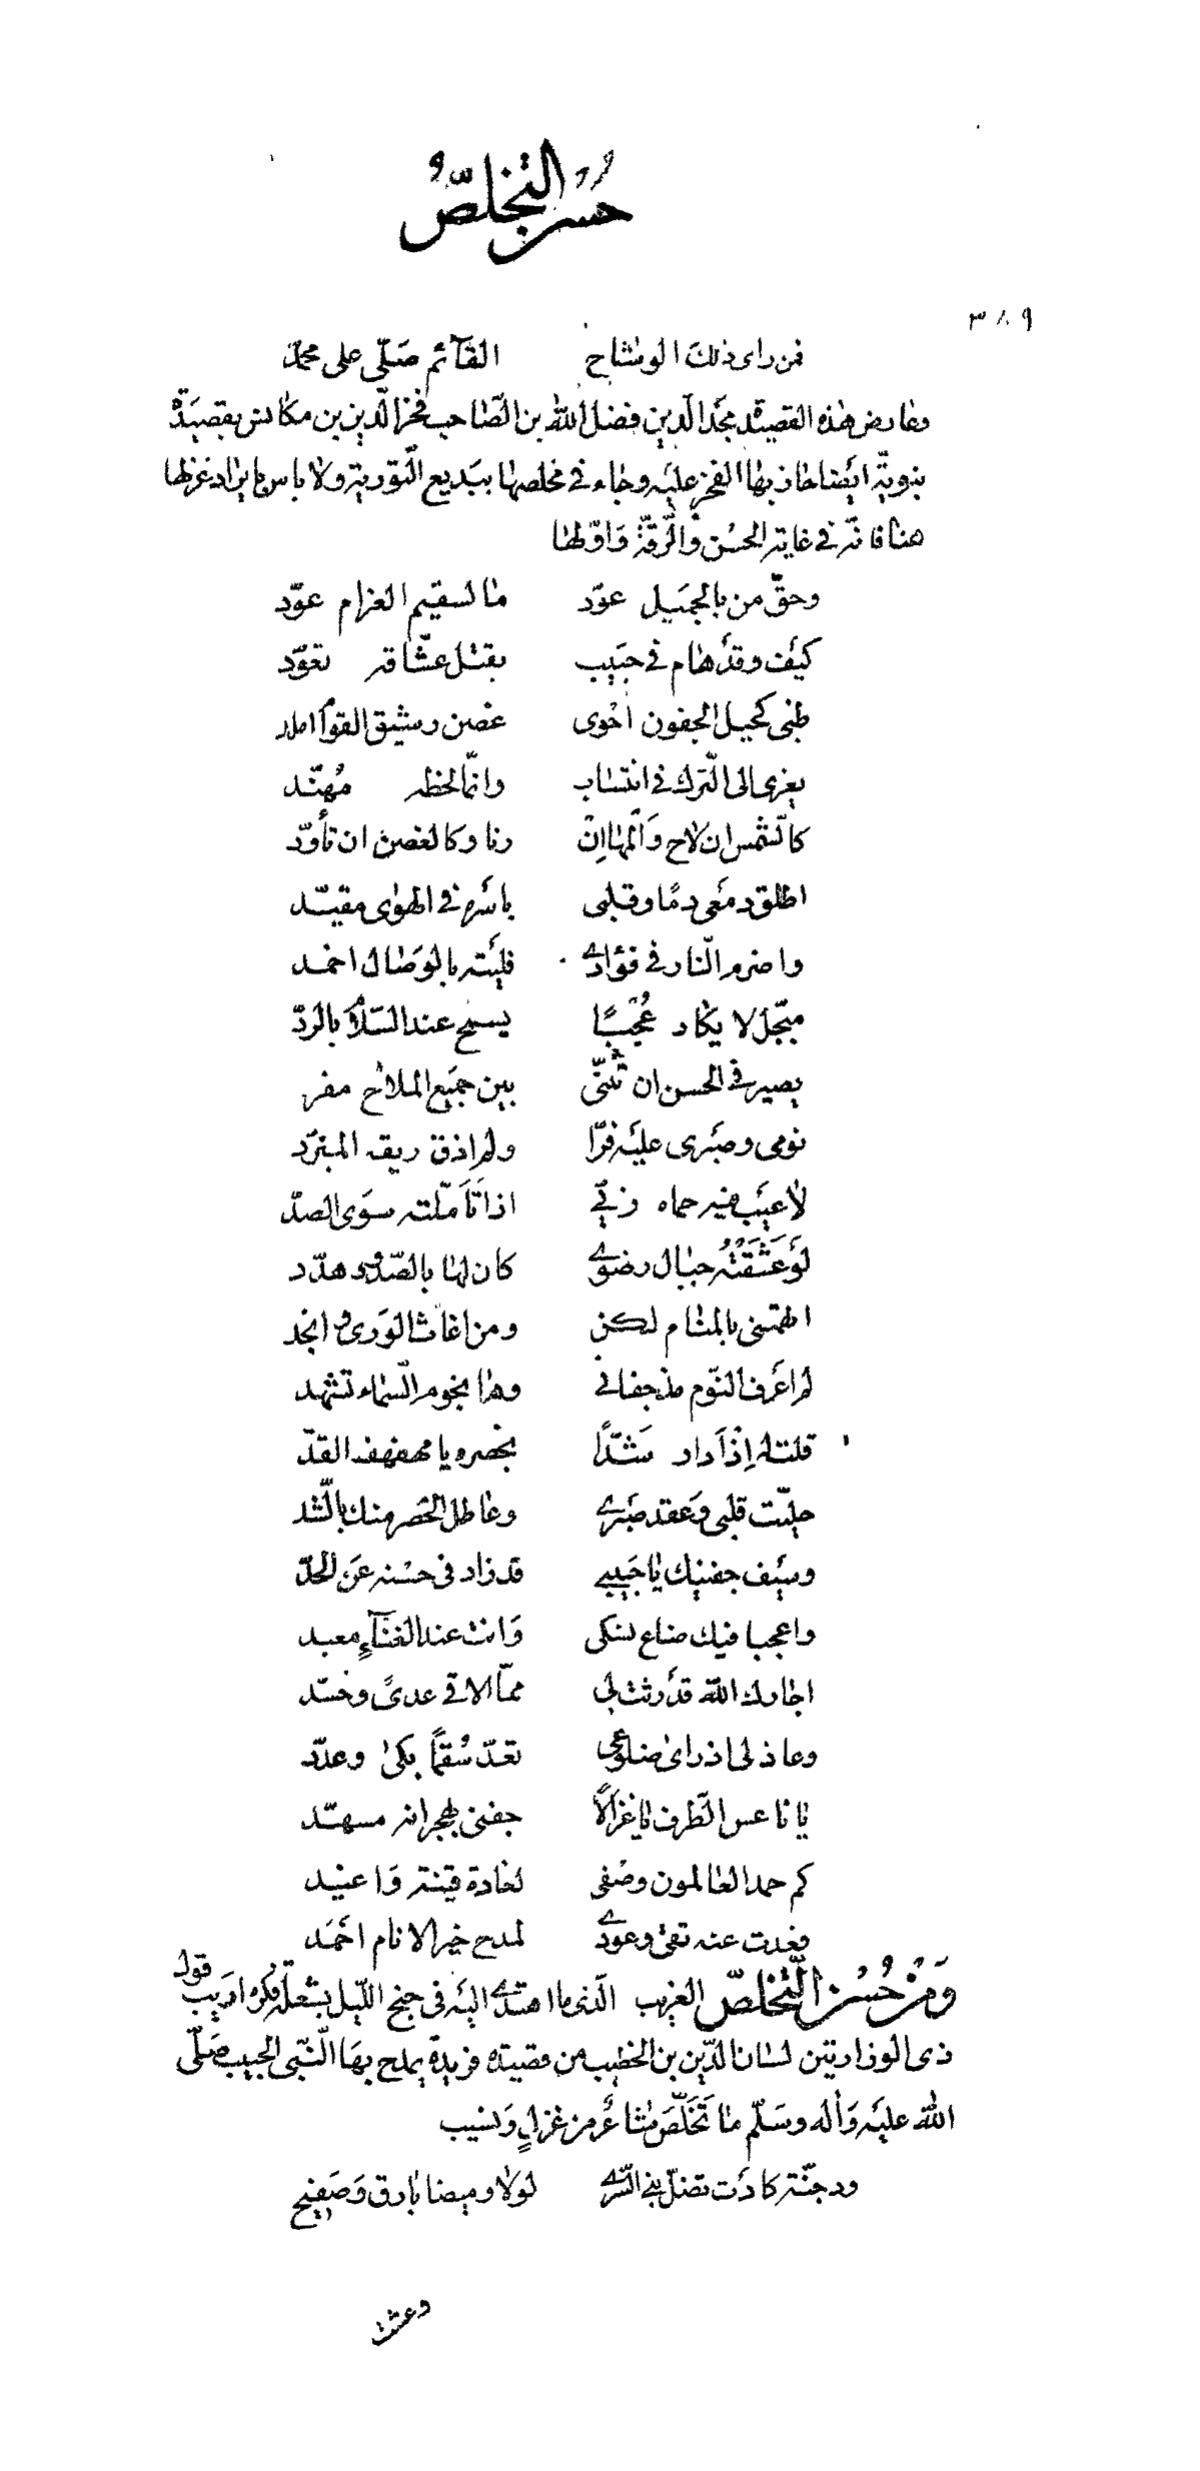 حُسْن التخلّص
٣٨٩
فمن راى ذلك الوشاح القآئم صَلّى على محمّد
وعارض هٰذه القصيدة مجَد الّدين فضل اللّٰه بن الصّاحب فخر الّدين بن مكانس بقصيَدة
نبويّة ايَضا حاز بهٰا الفخر عليَه وجٰاء في مخلصهٰا ببَديع الّتورية ولاٰ باس بايرٰاد غزلهٰا
هنا فانّه في غاية الحسْن والرّقّة وَاوّلهٰا
وحقّ من بالجميَل عوّد مٰا لسقيم الغرام عوّد
كيَف وقدَ هٰام في حبَيب بقتل عشّاقه تعوّد
ظبى كحيل الجفون احْوى غصن رشيق القوام املد
يعزى الى الّترك في انتسٰاب وانّما لحظه مُهنّد
كالشّمس ان لاح وَالمهٰا اِن رنا وكالغصن ان تأوّد
اطلق دمَعى دمًا وقلبى باسَره في الهوٰى مقيّد
واضرم الّنار في فؤادي فليَته بالوَصٰال اخمد
مبجّل لا يكٰاد عُجْبًا يسمح عند السّلام بالردّ
يصير في الحسن ان تثنّى بين جميَع الملاٰح مفرد
نومى وصبَرى عليَه فرّا ولم اذق ريقه المبرّد
لاٰ عيَب فيه حماه ربّي اذا تَاَمّلته سوَى الصدّ
لوَ عَشَقَتْهُ جبٰال رضوي كان لهٰا بالصّدود هدّد
اتهمنى بالمنٰام لكن ومن اغاث الوَرى وانجد
لم اعَرف النوّم مذ جفانى وهٰا نجوم السّماء تشهد
قلت له اِذْ اَدار شَدًّا بخصره يا مهفهف القدّ
حليّت قلبى وَعقد صبَري وعٰاطل الخصَر منك بالّشد
وسيَف جفنيك يٰا حَبيبي قد زاد فى حسْنه عَن الحدّ
واعجبا فيك ضاع نسكى وَانت عند الغنَآءِ معبد
اجٰارك اللّٰه قدَ رثت لى ممّا الاقى عدىً وحسّد
وعاذلى اذ راىٰ ضلوعى تعدّ سُقمًا بكىٰ وعدّد
يٰا ناعس الّطرف يٰا غزالاً جفنى بهجرانه مسهّد
كم حمد العٰالمون وصْفى لغادة قينة وَاغيد
فعدت عنه تقى وعودي لمدح خير الانام احمَد
وَمن حُسْن الّتخلصّ الغريب الّذى ما اهتدي اليَه فى جنح اللّيل بشعلة فكره اديَب قول
ذى الوزارتين لسٰان الدّين بن الخطيب من قصيدة فريدة يمدح بهَا الّنبّى الحبيب صَلّى
اللّٰه عليَه وَاٰله وسَلّم مٰا تَخَلّصَ شٰاعٌر من غزلٍ وَنسيب
ودجنّة كادَت تضلّ بني السّري لولاٰ وميضا بٰارق وَصَفيح
وعشت